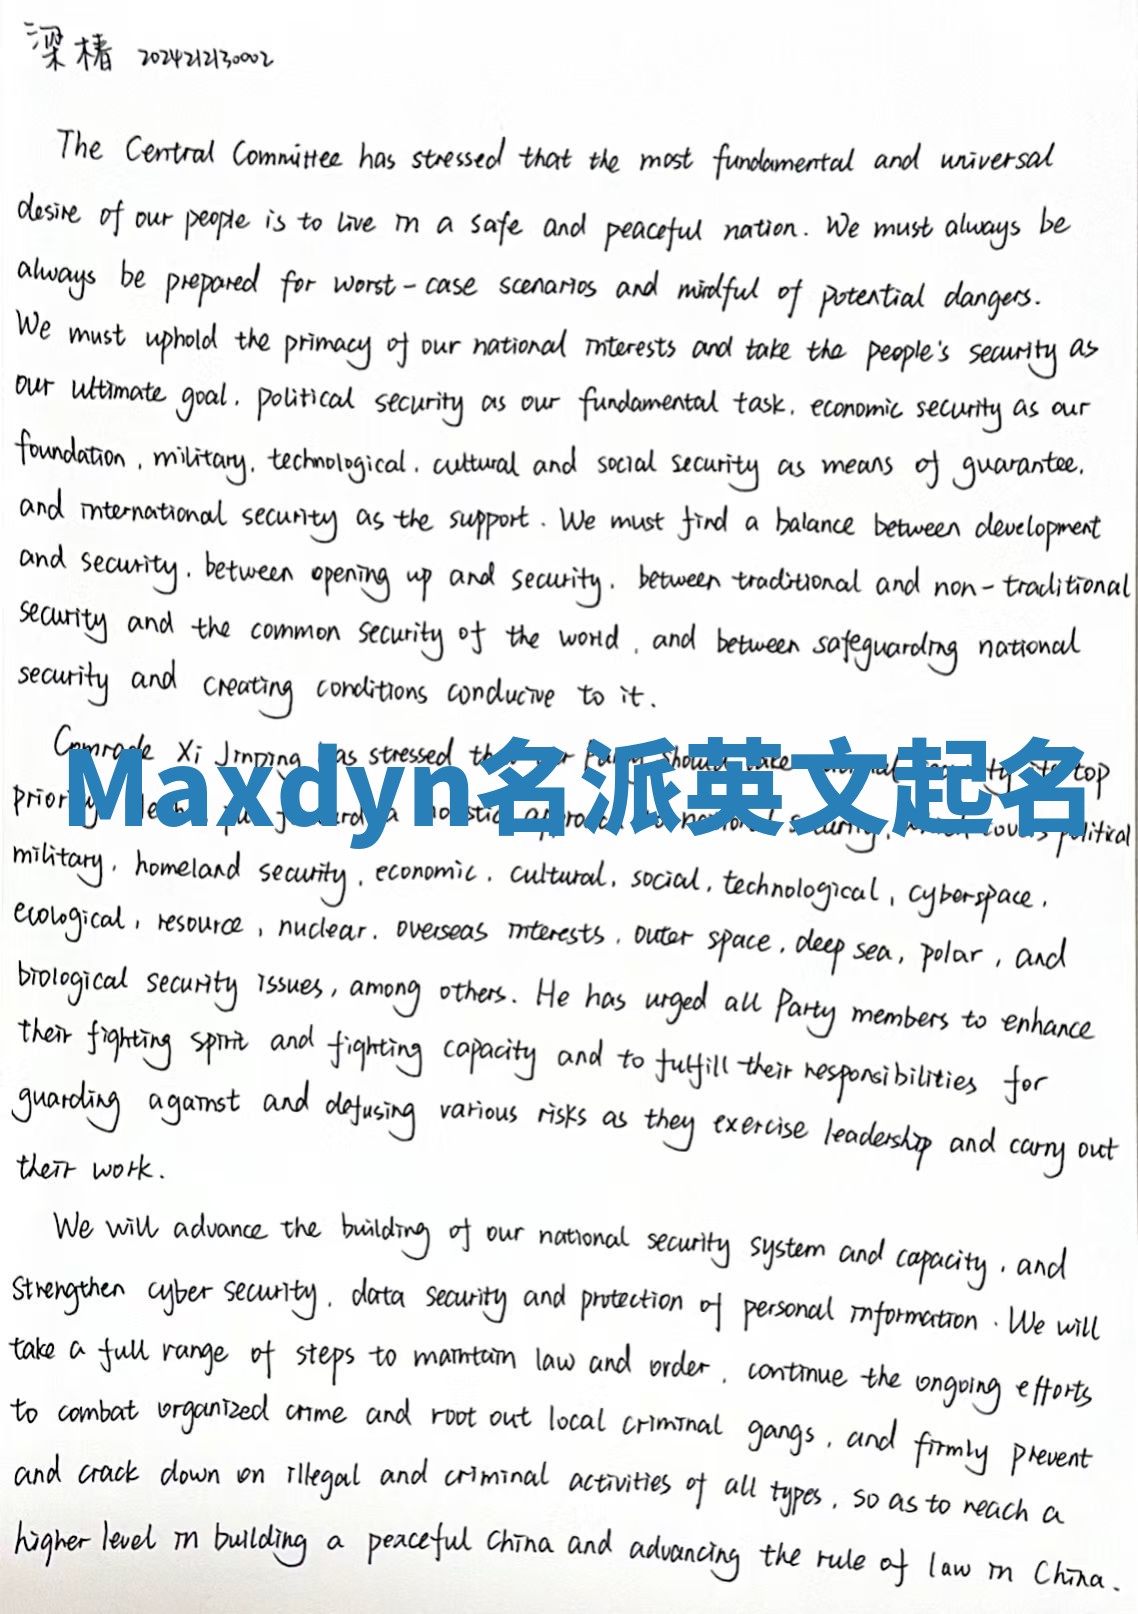 梁椿 2024212130002
The Central Committee has stressed that the most fundamental and universal
desire of our people is to live in a safe and peaceful nation. We must always be
always be prepared for worst-case scenarios and mindful of potential dangers.
We must uphold the primacy of our national interests and take the people's security as
our ultimate goal, political security as our fundamental task, economic security as our
foundation, military, technological, cultural and social security as means of guarantee,
and international security as the support. We must find a balance between development
and security, between opening up and security, between traditional and non-traditional
security and the common security of the world, and between safeguarding national
security and creating conditions conducive to it.
Comrade Xi Jinping has stressed top
a political
Maxdyn名派英文起名
military, homeland security, economic, cultural, social, technological, cyberspace,
ecological, resource, nuclear, overseas interests, outer space, deep sea, polar, and
biological security issues, among others. He has urged all Party members to enhance
their fighting spirit and fighting capacity and to fulfill their responsibilities for
guarding against and defusing various risks as they exercise leadership and carry out
their work.
We will advance the building of our national security system and capacity, and
strengthen cyber security, data security and protection of personal information. We will
take a full range of steps to maintain law and order, continue the ongoing efforts
to combat organized crime and root out local criminal gangs, and firmly prevent
and crack down on illegal and criminal activities of all types, so as to reach a
higher level in building a peaceful China and advancing the rule of law in China.